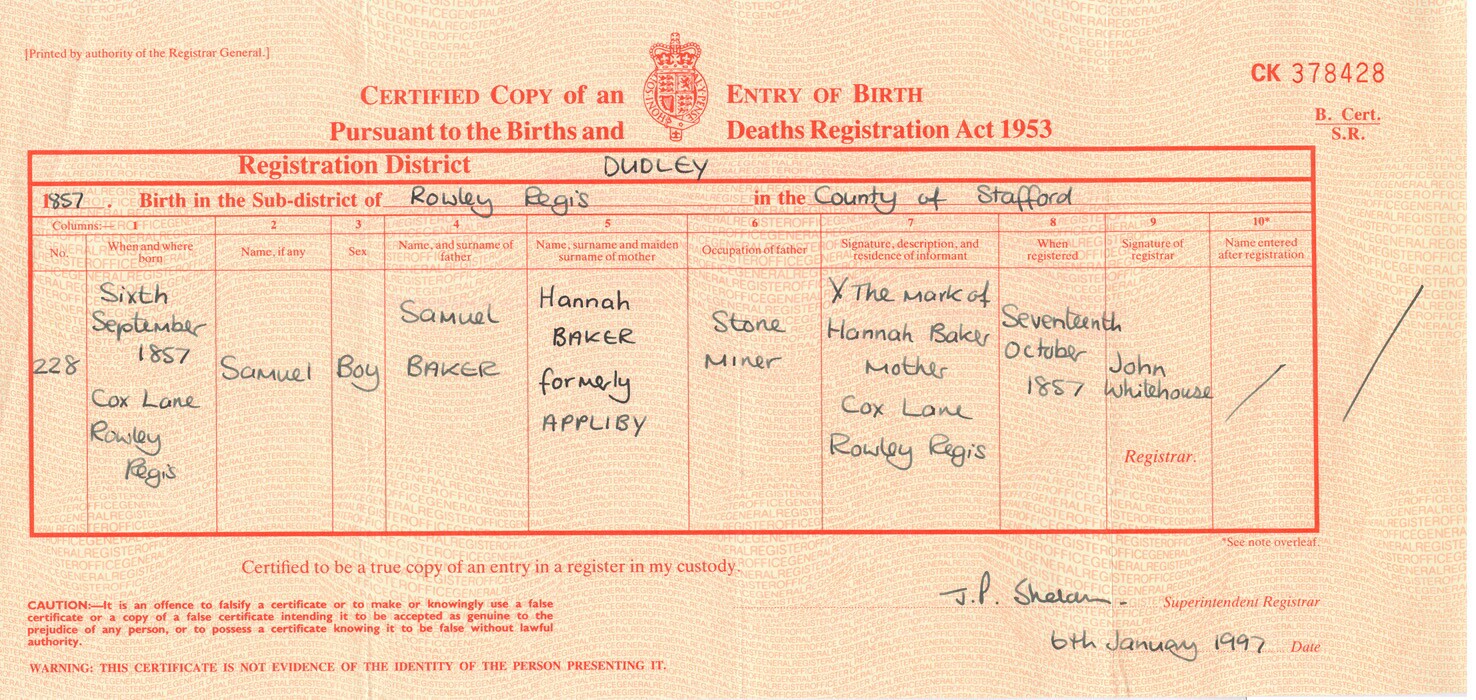 [Printed by authority of the Registrar General.]
CK 378428
CERTIFIED COPY of an ENTRY OF BIRTH
Pursuant to the Births and Deaths Registration Act 1953
B. Cert.
S.R.
HONI·SOIT·
Registration District DUDLEY
1857 . Birth in the Sub-district of Rowley Regis in the County of Stafford
Columns:— 1 2 3 4 5 6 7 8 9 10*
No.
When and where
born
Name, if any
Sex
Name, and surname of
father
Name, surname and maiden
surname of mother
Occupation of father
Signature, description, and
residence of informant
When
registered
Signature of
registrar
Name entered
after registration
228
Sixth
September
1857
Cox Lane
Rowley
Regis
Samuel
Boy
Samuel
BAKER
Hannah
BAKER
formerly
APPLIBY
Stone
Miner
X The mark of
Hannah Baker
Mother
Cox Lane
Rowley Regis
Seventeenth
October
1857
John
Whitehouse
Registrar.
*See note overleaf.
Certified to be a true copy of an entry in a register in my custody.
CAUTION:—It is an offence to falsify a certificate or to make or knowingly use a false
certificate or a copy of a false certificate intending it to be accepted as genuine to the
prejudice of any person, or to possess a certificate knowing it to be false without lawful
authority.
WARNING: THIS CERTIFICATE IS NOT EVIDENCE OF THE IDENTITY OF THE PERSON PRESENTING IT.
J.P. Superintendent Registrar
6th January 1997 Date